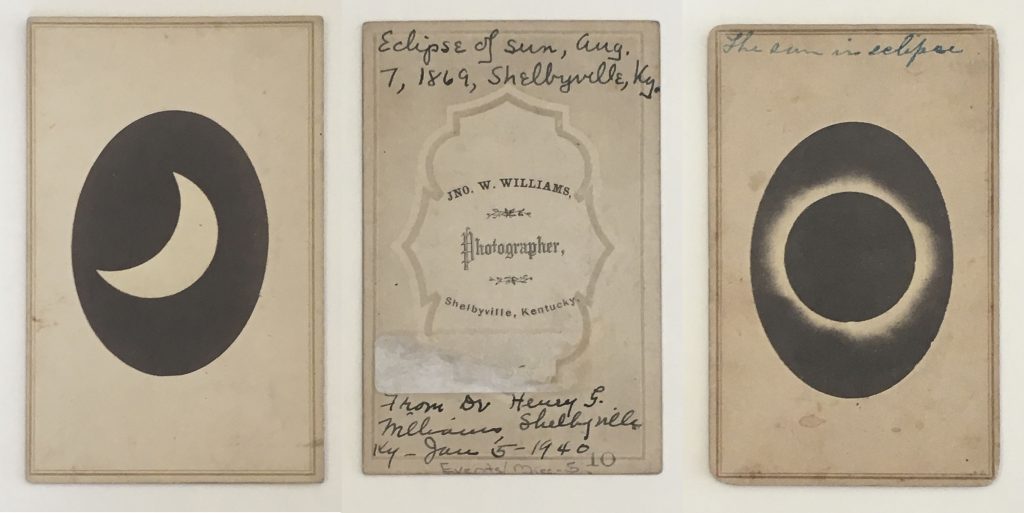 Eclipse of sun, Aug.
7, 1869, Shelbyville, Ky.
JNO. W. WILLIAMS,
Photographer,
Shelbyville, Kentucky.
From Dr Henry G.
Williams Shelbyville
Ky - Jan 5 - 1940
Events/Misc-5
10
The sun in eclipse